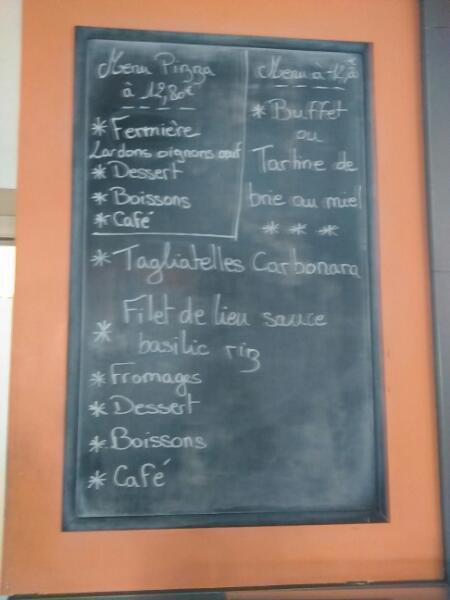 Menu Pizza
à 12,80€
* Fermière
Lardons oignons œuf
* Dessert
* Boissons
* Café
Menu à
* Buffet
ou
Tartine de
brie au miel
* * *
* Tagliatelles Carbonara
* Filet de lieu sauce
basilic riz
* Fromages
* Dessert
* Boissons
* Café